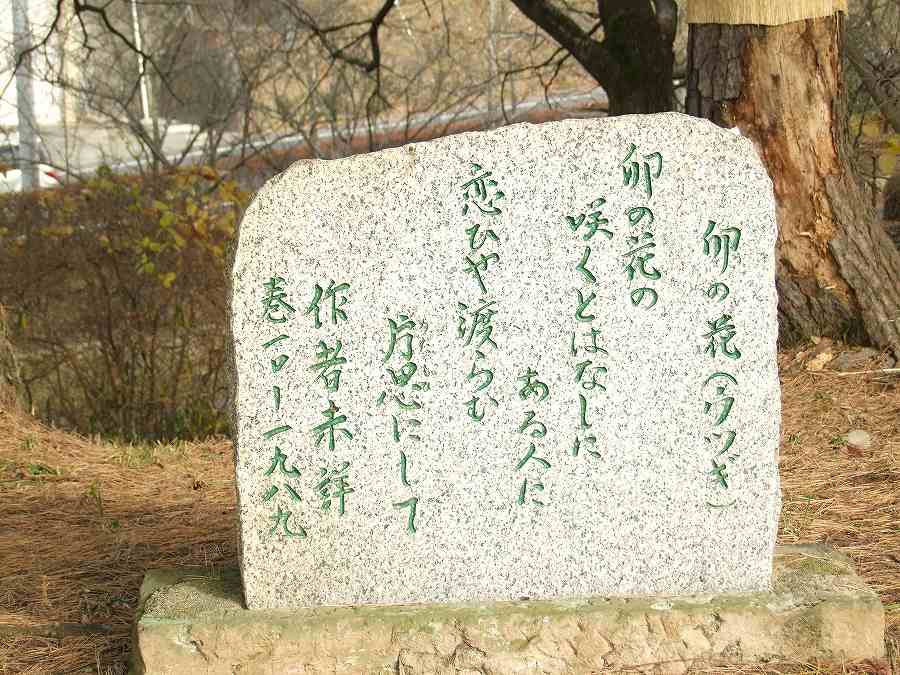 卯の花(ウツギ)
卯の花の
咲くとはなしに
ある人に
恋ひや渡らむ
片思にして
作者未詳
巻一〇ー一九八九